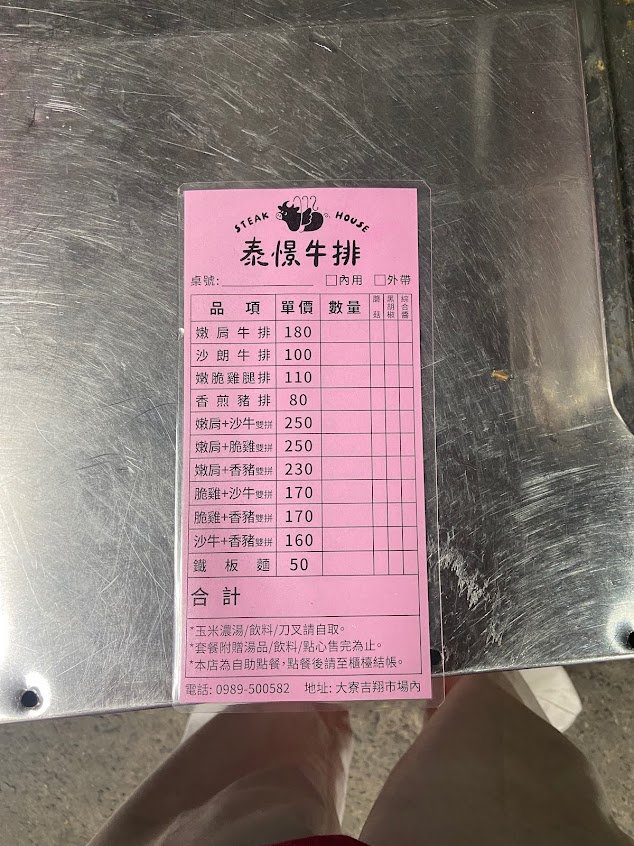 STEAK HOUSE
泰憬牛排
桌號: □內用 □外帶
品項 單價 數量 蘑菇 黑胡椒 綜合醬
嫩肩牛排 180
沙朗牛排 100
嫩脆雞腿排 110
香煎豬排 80
嫩肩+沙牛雙拼 250
嫩肩+脆雞雙拼 250
嫩肩+香豬雙拼 230
脆雞+沙牛雙拼 170
脆雞+香豬雙拼 170
沙牛+香豬雙拼 160
鐵板麵 50
合計
*玉米濃湯/飲料/刀叉請自取。
*套餐附贈湯品/飲料/點心售完為止。
*本店為自助點餐,點餐後請至櫃檯結帳。
電話: 0989-500582 地址: 大寮吉翔市場內